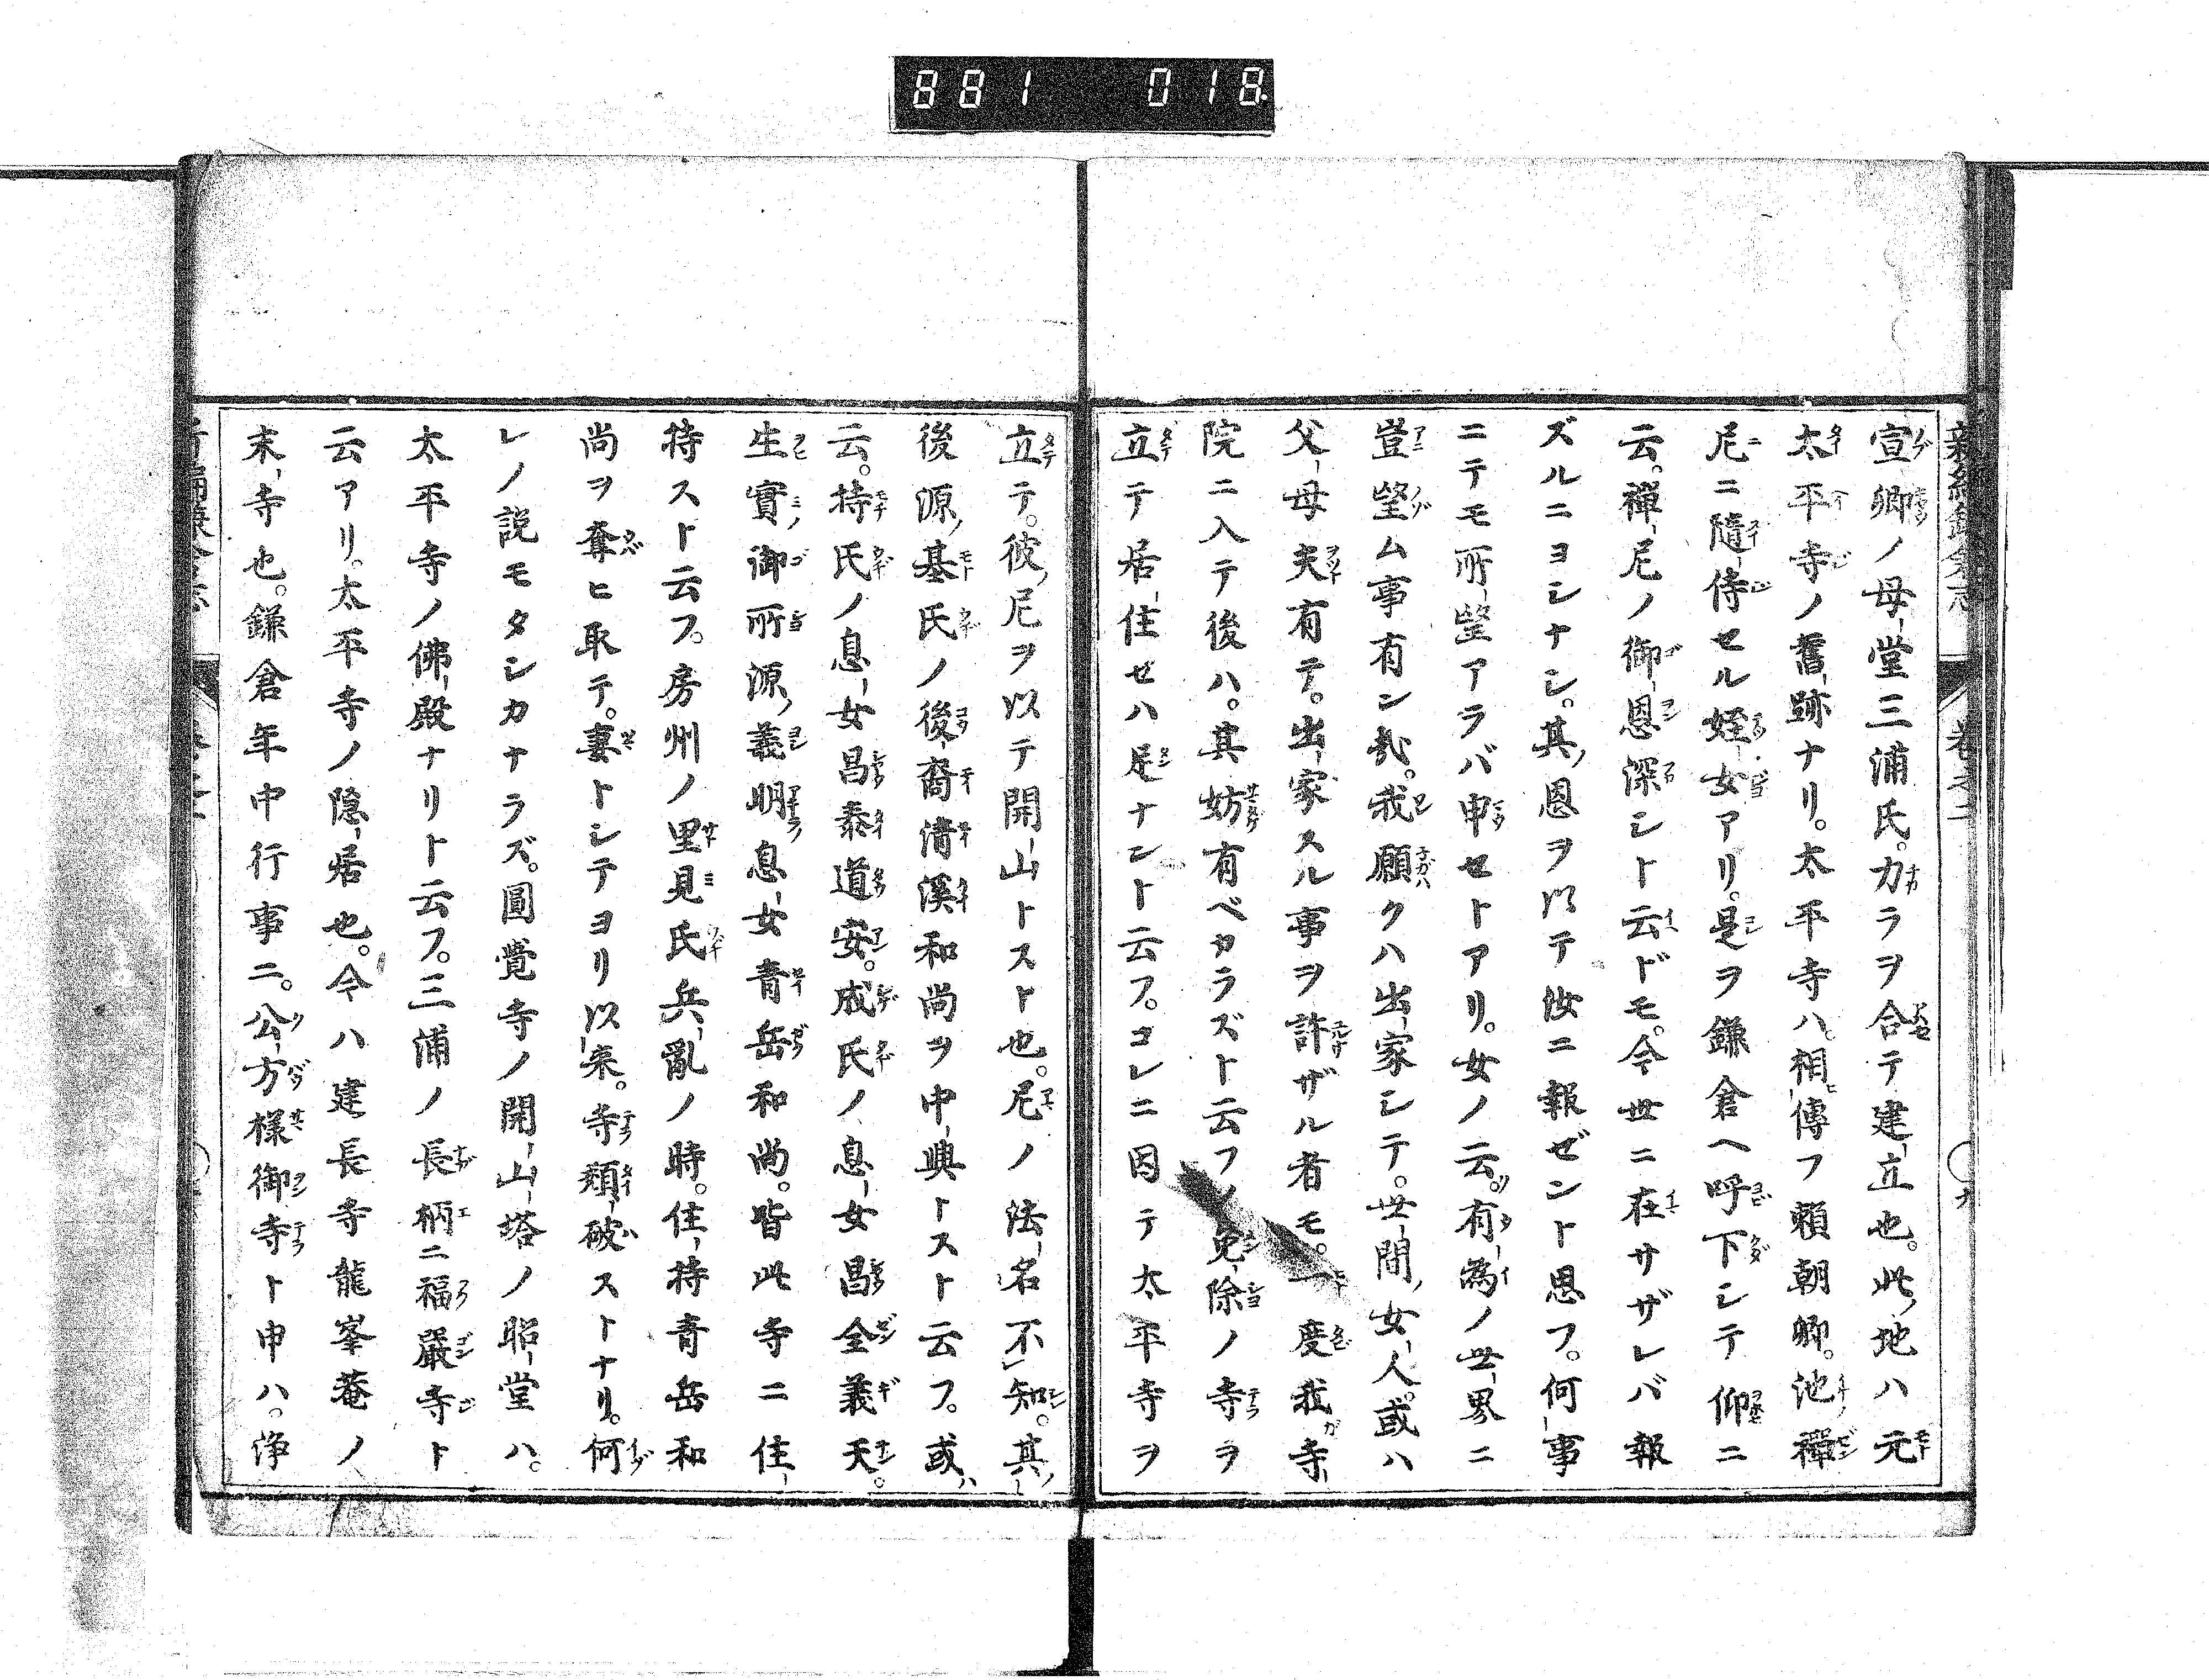 881 018
宣卿ノ母堂三浦氏。力ラヲ合テ建立也。此地ハ元
太平寺ノ舊跡ナリ。太平寺ハ。相傳フ頼朝卿。池禪
尼ニ隨侍セル姪女アリ。是ヲ鎌倉ヘ呼下シテ仰ニ
云。禪尼ノ御恩深シト云ドモ。今世ニ在サザレバ報
ズルニヨシナシ。其恩ヲ以テ汝ニ報ゼント思フ。何事
ニテモ所望アラバ申セトアリ。女ノ云。有為ノ世界ニ
豈望ム事有ン哉。我願クハ出家シテ。世間ノ女人。或ハ
父母夫有テ。出家スル事ヲ許ザル者モ。一度我寺
院ニ入テ後ハ。其妨有ベカラズト云フノ免除ノ寺ヲ
立テ居住セハ足ナント云フ。コレニ因テ太平寺ヲ
立テ。彼尼ヲ以テ開山トスト也。尼ノ法名不知。其
後源基氏ノ後裔清溪和尚ヲ中興トスト云フ。或ハ
云。持氏ノ息女昌泰道安。成氏ノ息女昌全義天。
生實御所源義明息女青岳和尚。皆此寺ニ住
持スト云フ。房州ノ里見氏兵亂ノ時。住持青岳和
尚ヲ奪ヒ取テ。妻トシテヨリ以来。寺頽破ストナリ。何
レノ説モタシカナラズ。圓覺寺ノ開山塔ノ昭堂ハ。
太平寺ノ佛殿ナリト云フ。三浦ノ長柄ニ福嚴寺ト
云アリ。太平寺ノ隠居也。今ハ建長寺龍峯菴ノ
末寺也。鎌倉年中行事ニ。公方様御寺ト申ハ。浄